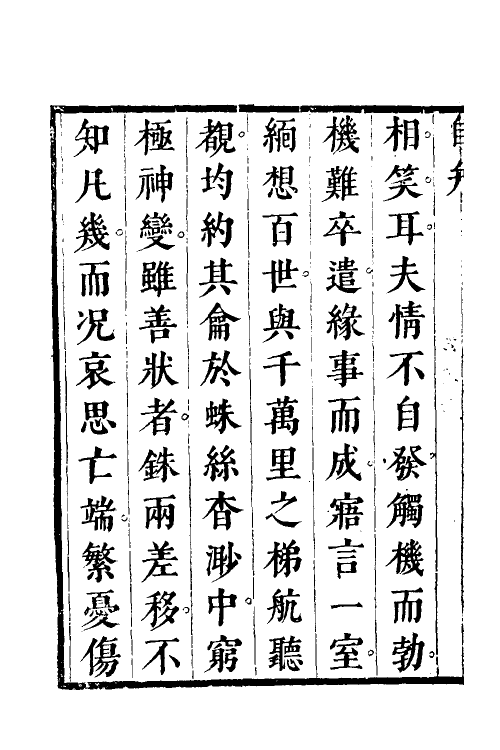 相笑耳夫情不自發觸機而勃
機難卒遣緣事而成寤言一室
緬想百世與千萬里之梯航聽
覩均約其侖於蛛絲杳渺中窮
極神變雖善狀者銖兩差移不
知凡幾而况哀思亡端繁憂傷